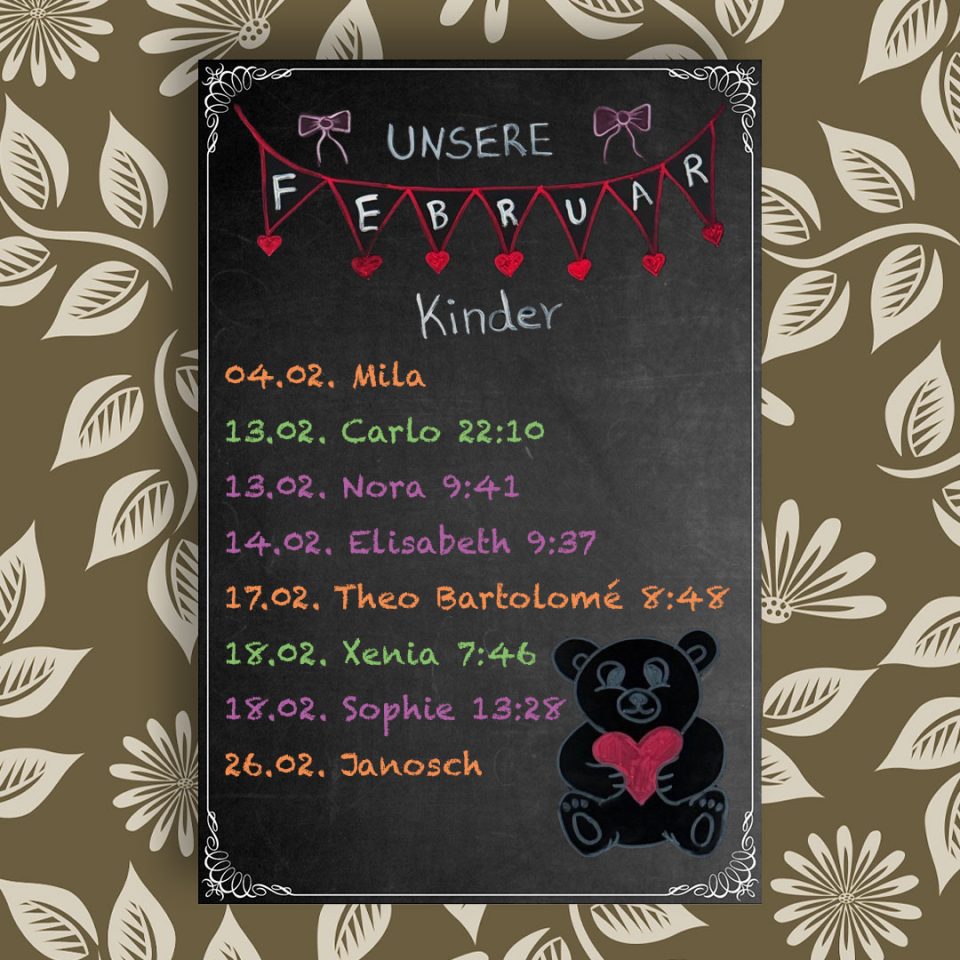 UNSERE
FEBRUAR
Kinder
04.02. Mila
13.02. Carlo 22:10
13.02. Nora 9:41
14.02. Elisabeth 9:37
17.02. Theo Bartolomé 8:48
18.02. Xenia 7:46
18.02. Sophie 13:28
26.02. Janosch